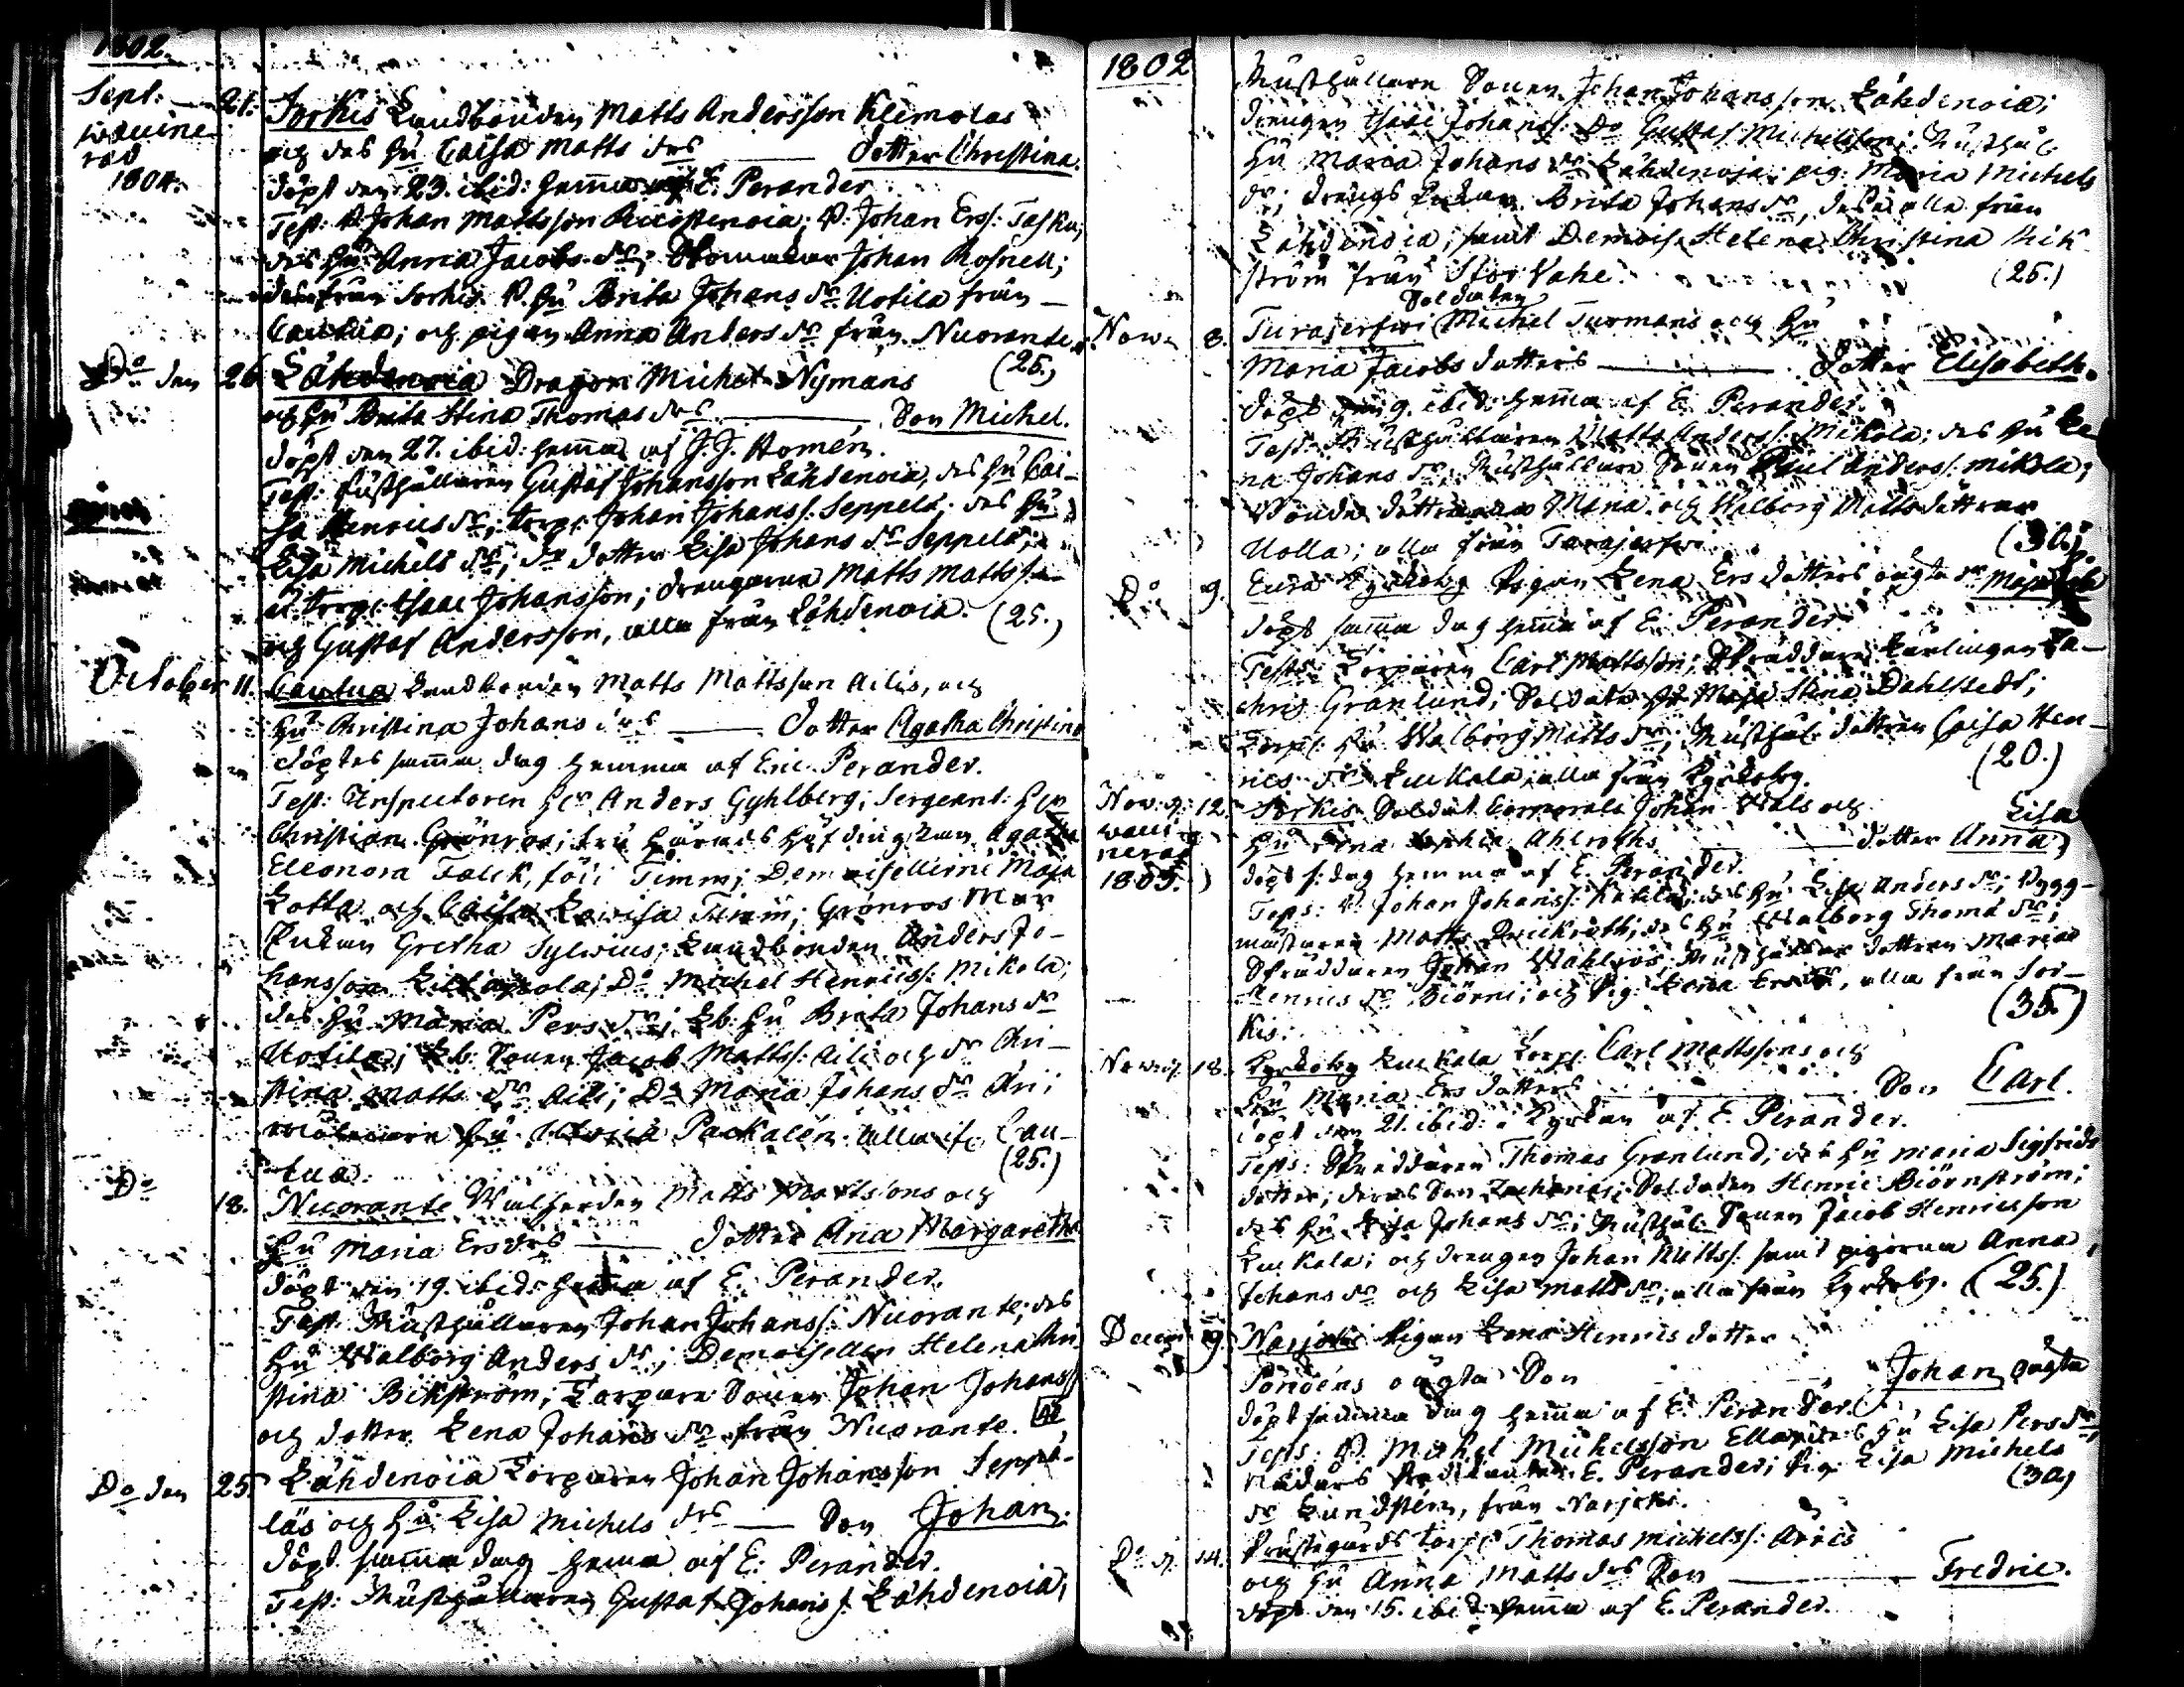 1802.
Sept. 21. Sorkis Landbonden Matts Andersson Klemolas
och des hu Caisa Matts drs Dotter Christina.
döpt den 23. ibid: hemma af E. Perander
Test: B. Johan Mattsson; B. Johan Ers: Taska,
des hu Anna Jacobs dr; Skomakar Johan Rosnell;
från Sorkis. B. hu Brita Johans dr Uotila från
Cautua; och pigan Anna Anders dr från Nuorante.
(25.)
1804.
Do den 26. Lähdenoia Dragon Michel Nymans
och hu Brita Stina Thomas drs Son Michel.
döpt den 27. ibid: hemma af J. J. Homén.
Test: Rusthållaren Gustaf Johansson Lähdenoia, des hu Cai-
sa Henrics dr; torp: Johan Johanss: Seppelä; des hu
Lisa Michels dr; Dr dotter Lisa Johans dr Seppelä;
torp: Isaac Johansson; drängarna Matts Mattsson
och Gustaf Andersson, alla från Lähdenoia. (25.)
October 11. Cautua Landbonden Matts Mattsson Ailis, och
hu Christina Johans drs Dotter Agatha Christina
döptes samma dag hemma af Eric Perander.
Test: Inspectoren Her Anders Gyhlberg; Sergeant: Her
Christian Grönros; fru Härads Höfdingskan Agatha
Eleonora Falck, föd Timm; Demoisellerne Maja
Lotta och Caisa Lovisa Timm; Grönros
Gretha Sylvius; Landbonden Anders Jo-
hansson; Do Michel Henricss: Mikola;
des hu Maria Pers dr; Lb: hu Brita Johans dr
Uotila; Lb: Sonen Jacob Mattss: Aili och dr Chri-
stina Matts dr Aili; Do Maria Johans dr
hu Packalén. alla if: Cau-
tua. (25.)
Do 18. Nuorante Matts Mattssons och
hu Maria Ers drs Dotter Ana Margaretha
döpt den 19. ibid: hemma af E. Perander.
Test: Rusthållaren Johan Johanss: Nuorante; des
hu Walborg Anders dr; Demoisellen Helena Chri-
stina Bikström; Torpare Sonen Johan Johanss:
och dotter Lena Johans dr från Nuorante.
Do den 25. Lähdenoia Torparen Johan Johansson Seppä-
läs och hu Lisa Michels drs Son Johan.
döpt samma dag hemma af E: Perander.
Test: Rusthållaren Gustaf Johanss: Lähdenoia,
1802
Rusthållare Sonen Johan Johansson Lähdenoia;
drängen Isaac Johanss: Do Gustaf Michelsson; Rusthål:
hu Maria Johans dr Lähdenoja; pig: Maria Michels
dr; Brita Johans dr, desse alla från
Lähdenoia; samt Demois: Helena Christina Bik-
ström från Stor Vahe. (25.)
Nov. 8. Turajerfwi Soldaten Michel Turmans och hu
Maria Jacobs dotters Dotter Elisabeth.
döpt den 9. ibid: hemma af E. Perander.
Test: Rusthållaren Matts Anderss: Mikola; des hu Le-
na Johans dr, Rusthållare Sonen Paul Anderss: Mikola;
Bonde döttrarna Mina och Walborg Matts döttrar
Uolla; alla från Turajerfwi. (30.)
Do 9. Eura Kyrkoby Pigan Lena Ers dotters oägta dr Maja
döpt samma dag hemma af E. Perander.
Test: Torparen Carl Mattsson; Skräddare Lärlingen Za-
chris Granlund; Soldate hu Maja Stina Dahlstedt;
Torp: hu Walborg Matts dr; Rusthål: dottren Caisa Hen-
rics dr Luukala; alla från Kyrkoby. (20.)
Nov: 12. Sorkis Soldat Corporals Johan Wals och
hu Lena Ahlroths dotter Lisa Anna
1805.
döpt s: dag hemma af E. Perander.
Test: B. Johan Johanss:; des hu Lisa Anders dr; Bygg-
mästaren Matts; des hu Walborg Thoma dr;
Skräddaren Johan Wahlros; Rusthållar dottren Maria
Henrics dr Biörni; och Pig: Lena Ers dr, alla från Sor-
kis. (35.)
Nov: 18. Kyrkoby Luukala Torp: Carl Mattssons och
hu Maria Ers dotters Son Carl.
döpt den 21. ibid: i Kyrkan af E. Perander.
Test: Skräddaren Thomas Granlund; des hu Maria Sigfrids
dotter; deras Son Zachris; Soldaten Henric Biörnström;
des hu Lisa Johans dr; Rusthål: Sonen Jacob Henricsson
Luukala; och drengen Johan Mattss: samt pigorna Anna
Johans dr och Lisa Matts dr; alla från Kyrkoby. (25.)
Decem: 9. Narjoki Pigan Lena Henrics dotter
oägta Son Johan oägta
döpt samma dag hemma af E. Perander.
Test: B. Michel Michelsson; des hu Lisa Pers dr,
E. Perander; Pig: Lisa Michels
dr Lundstén, från Narjoki. (30)
Do 14. Prästegårds torp: Thomas Michelss: Arvis
och hu Anna Matts drs Son Fredric.
döpt den 15. ibid: hemma af E. Perander.